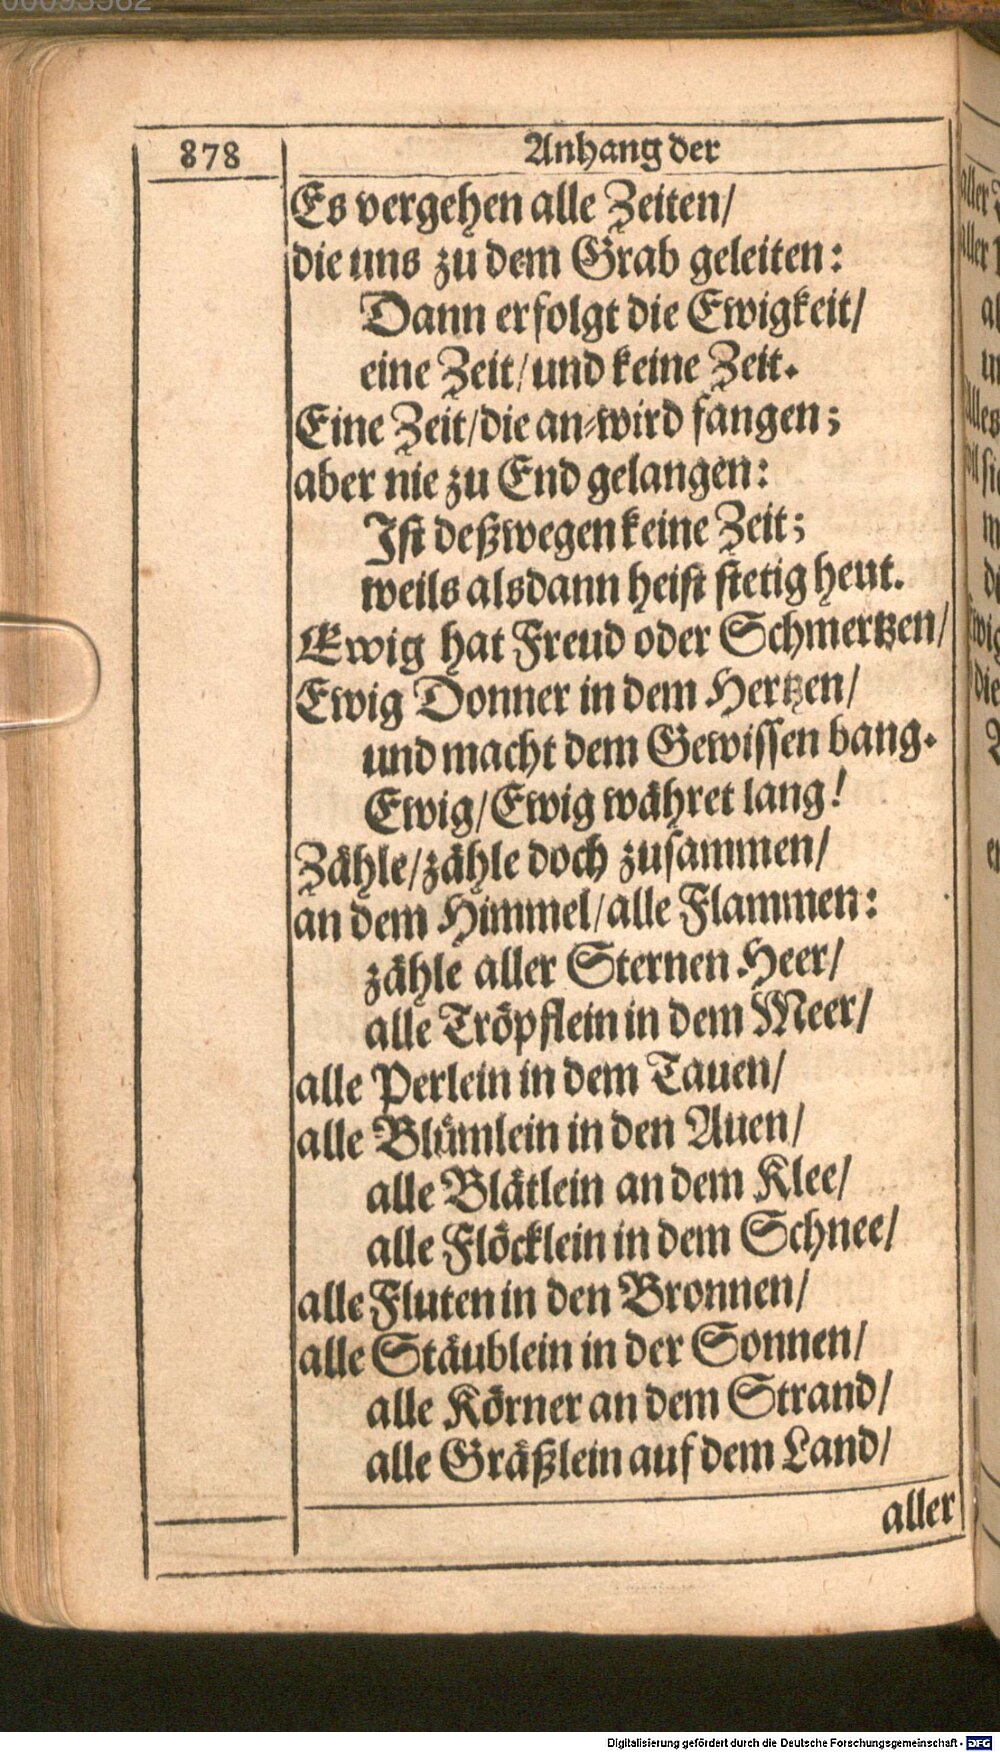 878
Anhang der
Es vergehen alle Zeiten/
die uns zu dem Grab geleiten:
Dann erfolgt die Ewigkeit/
eine Zeit/ und keine Zeit.
Eine Zeit/ die an-wird fangen;
aber nie zu End gelangen:
Ist deßwegen keine Zeit;
weils alsdann heist stetig heut.
Ewig hat Freud oder Schmertzen/
Ewig Donner in dem Hertzen/
und macht dem Gewissen bang.
Ewig/ Ewig währet lang!
Zähle/ zähle doch zusammen/
an dem Himmel/ alle Flammen:
zähle aller Sternen Heer/
alle Tröpflein in dem Meer/
alle Perlein in dem Tauen/
alle Blümlein in den Auen/
alle Blätlein an dem Klee/
alle Flöcklein in dem Schnee/
alle Fluten in den Bronnen/
alle Stäublein in der Sonnen/
alle Körner an dem Strand/
alle Gräßlein auf dem Land/
aller
Digitalisierung gefördert durch die Deutsche Forschungsgemeinschaft - DFG